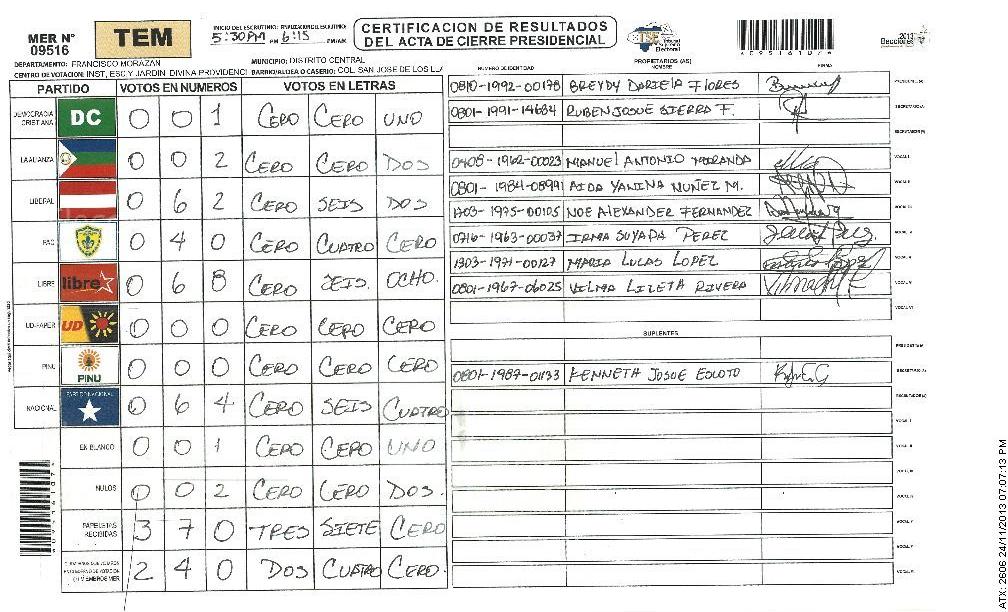 MER N° 09516
TEM
INICIO DEL ESCRUTINIO: FINALIZACION ESCRUTINIO:
5:30PM PM 6:15 PM/AM
CERTIFICACION DE RESULTADOS
DEL ACTA DE CIERRE PRESIDENCIAL
TSE Tribunal Supremo Electoral
2013
Elecciones
DEPARTAMENTO: FRANCISCO MORAZAN
MUNICIPIO: DISTRITO CENTRAL
CENTRO DE VOTACION: INST, ESC Y JARDIN DIVINA PROVIDENCI BARRIO/ALDEA O CASERIO: COL. SAN JOSE DE LOS LLA
PARTIDO VOTOS EN NUMEROS VOTOS EN LETRAS
DEMOCRACIA CRISTIANA DC 0 0 1 CERO CERO UNO
LA ALIANZA 0 0 2 CERO CERO DOS
LIBERAL 0 6 2 CERO SEIS DOS
PAC 0 4 0 CERO CUATRO CERO
LIBRE libre 0 6 8 CERO SEIS. OCHO.
UD-FAPER UD 0 0 0 CERO CERO CERO
PINU PINU 0 0 0 CERO CERO CERO
NACIONAL PARTIDO NACIONAL 0 6 4 CERO SEIS CUATRO
EN BLANCO 0 0 1 CERO CERO UNO
NULOS 0 0 2 CERO CERO DOS.
PAPELETAS RECIBIDAS 3 7 0 TRES SIETE CERO
2 4 0 DOS CUATRO CERO.
NUMERO DE IDENTIDAD PROPIETARIOS (AS) NOMBRE FIRMA
0810-1992-00178 BREYDY DARIELA FLORES PRESIDENTE (A)
0801-1991-14684 RUBEN JOSUE SIERRA F. SECRETARIO/A
ESCRUTADOR (A)
0405-1962-00023 MANUEL ANTONIO MIRANDA VOCAL I
0801-1984-08991 AIDA YANINA NUÑEZ M. VOCAL II
1703-1975-00105 NOE ALEXANDER FERNANDEZ VOCAL III
0716-1963-00037 IRMA SUYAPA PEREZ VOCAL IV
1303-1971-00127 MARIA LUCAS LOPEZ VOCAL V
0801-1967-06025 VILMA LIZETA RIVERA VOCAL VI
VOCAL VII
SUPLENTES
PRESIDENTE (A)
0801-1987-01133 KENNETH JOSUE SOLOTO SECRETARIO (A)
ESCRUTADOR (A)
VOCAL I
VOCAL II
VOCAL III
VOCAL IV
VOCAL V
VOCAL VI
ATX: 2606 24/11/2013 07:07:13 PM